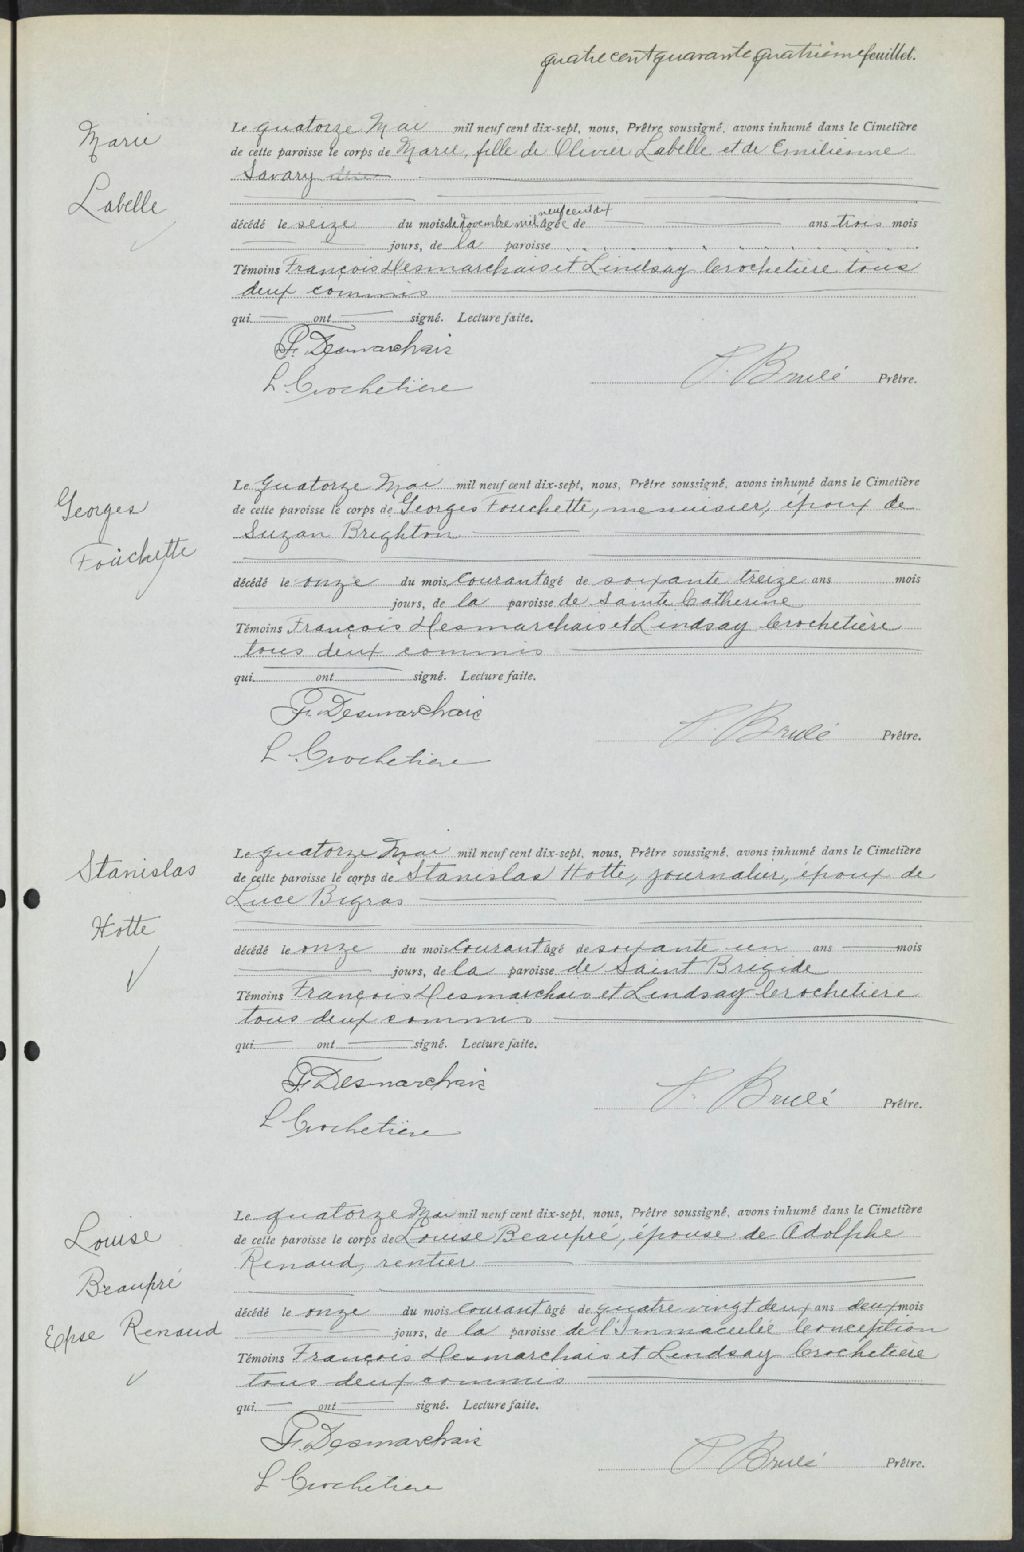 quatre cent quarante quatrième feuillet.
Marie
Labelle
Le quatorze Mai mil neuf cent dix-sept, nous, Prêtre soussigné, avons inhumé dans le Cimetière
de cette paroisse le corps de Marie, fille de Olivier Labelle et de Emilienne
Savary
neuf cent dix
décédé le seize du mois de Novembre mil âgé de ans trois mois
jours, de la paroisse
Témoins François Desmarchais et Lindsay Crochetière tous
deux commis
qui ont signé. Lecture faite.
F. Desmarchais
L. Crochetière
P. Brulé Prêtre.
Georges
Fouchette
Le quatorze Mai mil neuf cent dix-sept, nous, Prêtre soussigné, avons inhumé dans le Cimetière
de cette paroisse le corps de Georges Fouchette, menuisier, époux de
Suzan Brighton
décédé le onze du mois courant âgé de soixante treize ans mois
jours, de la paroisse de Sainte Catherine
Témoins François Desmarchais et Lindsay Crochetière
tous deux commis
qui ont signé. Lecture faite.
F. Desmarchais
L. Crochetiere
P. Brulé Prêtre.
Stanislas
Hotte
Le quatorze Mai mil neuf cent dix-sept, nous, Prêtre soussigné, avons inhumé dans le Cimetière
de cette paroisse le corps de Stanislas Hotte, journalier, époux de
Luce Bigras
décédé le onze du mois courant âgé de soixante un ans mois
jours, de la paroisse de Saint Brigide
Témoins François Desmarchais et Lindsay Crochetiere
tous deux commis
qui ont signé. Lecture faite.
F. Desmarchais
L. Crochetière
P. Brulé Prêtre.
Louise
Beaupré
Epse Renaud
Le quatorze Mai mil neuf cent dix-sept, nous, Prêtre soussigné, avons inhumé dans le Cimetière
de cette paroisse le corps de Louise Beaupré, épouse de Adolphe
Renaud, rentier
décédé le onze du mois courant âgé de quatre vingt deux ans deux mois
jours, de la paroisse de l'Immaculée Conception
Témoins François Desmarchais et Lindsay Crochetière
tous deux commis
qui ont signé. Lecture faite.
F. Desmarchais
L. Crochetiere
P. Brulé Prêtre.